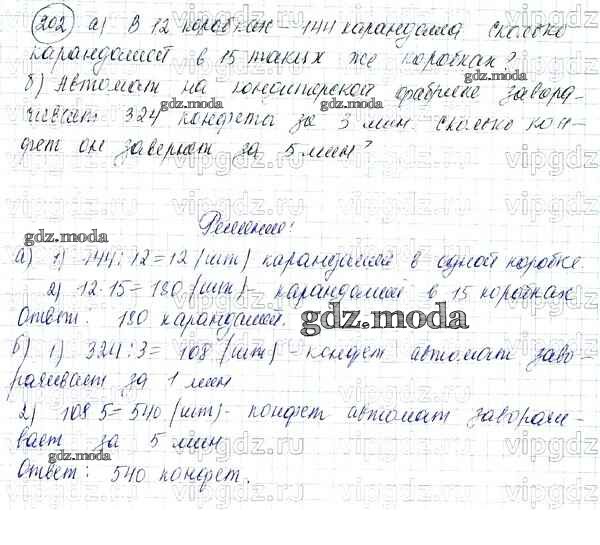 202 а) В 12 коробках - 144 карандаша сколько
карандашей в 15 таких же коробках?
б) Автомат на кондитерской фабрике завора-
чивает 324 конфеты за 3 мин. сколько кон-
фет он завернет за 5 мин?
Решение:
а) 1) 144:12=12 (шт) карандашей в одной коробке.
2) 12·15=180 (шт)- карандашей в 15 коробках
Ответ: 180 карандашей.
б) 1) 324:3= 108 (шт) - конфет автомат заво-
рачивает за 1 мин
2) 108 5= 540 (шт)- конфет автомат заворачи-
вает за 5 мин
Ответ: 540 конфет.
gdz.moda
gdz.moda
gdz.moda
gdz.moda
gdz.moda
gdz.moda
gdz.moda
gdz.moda
vipgdz.ru